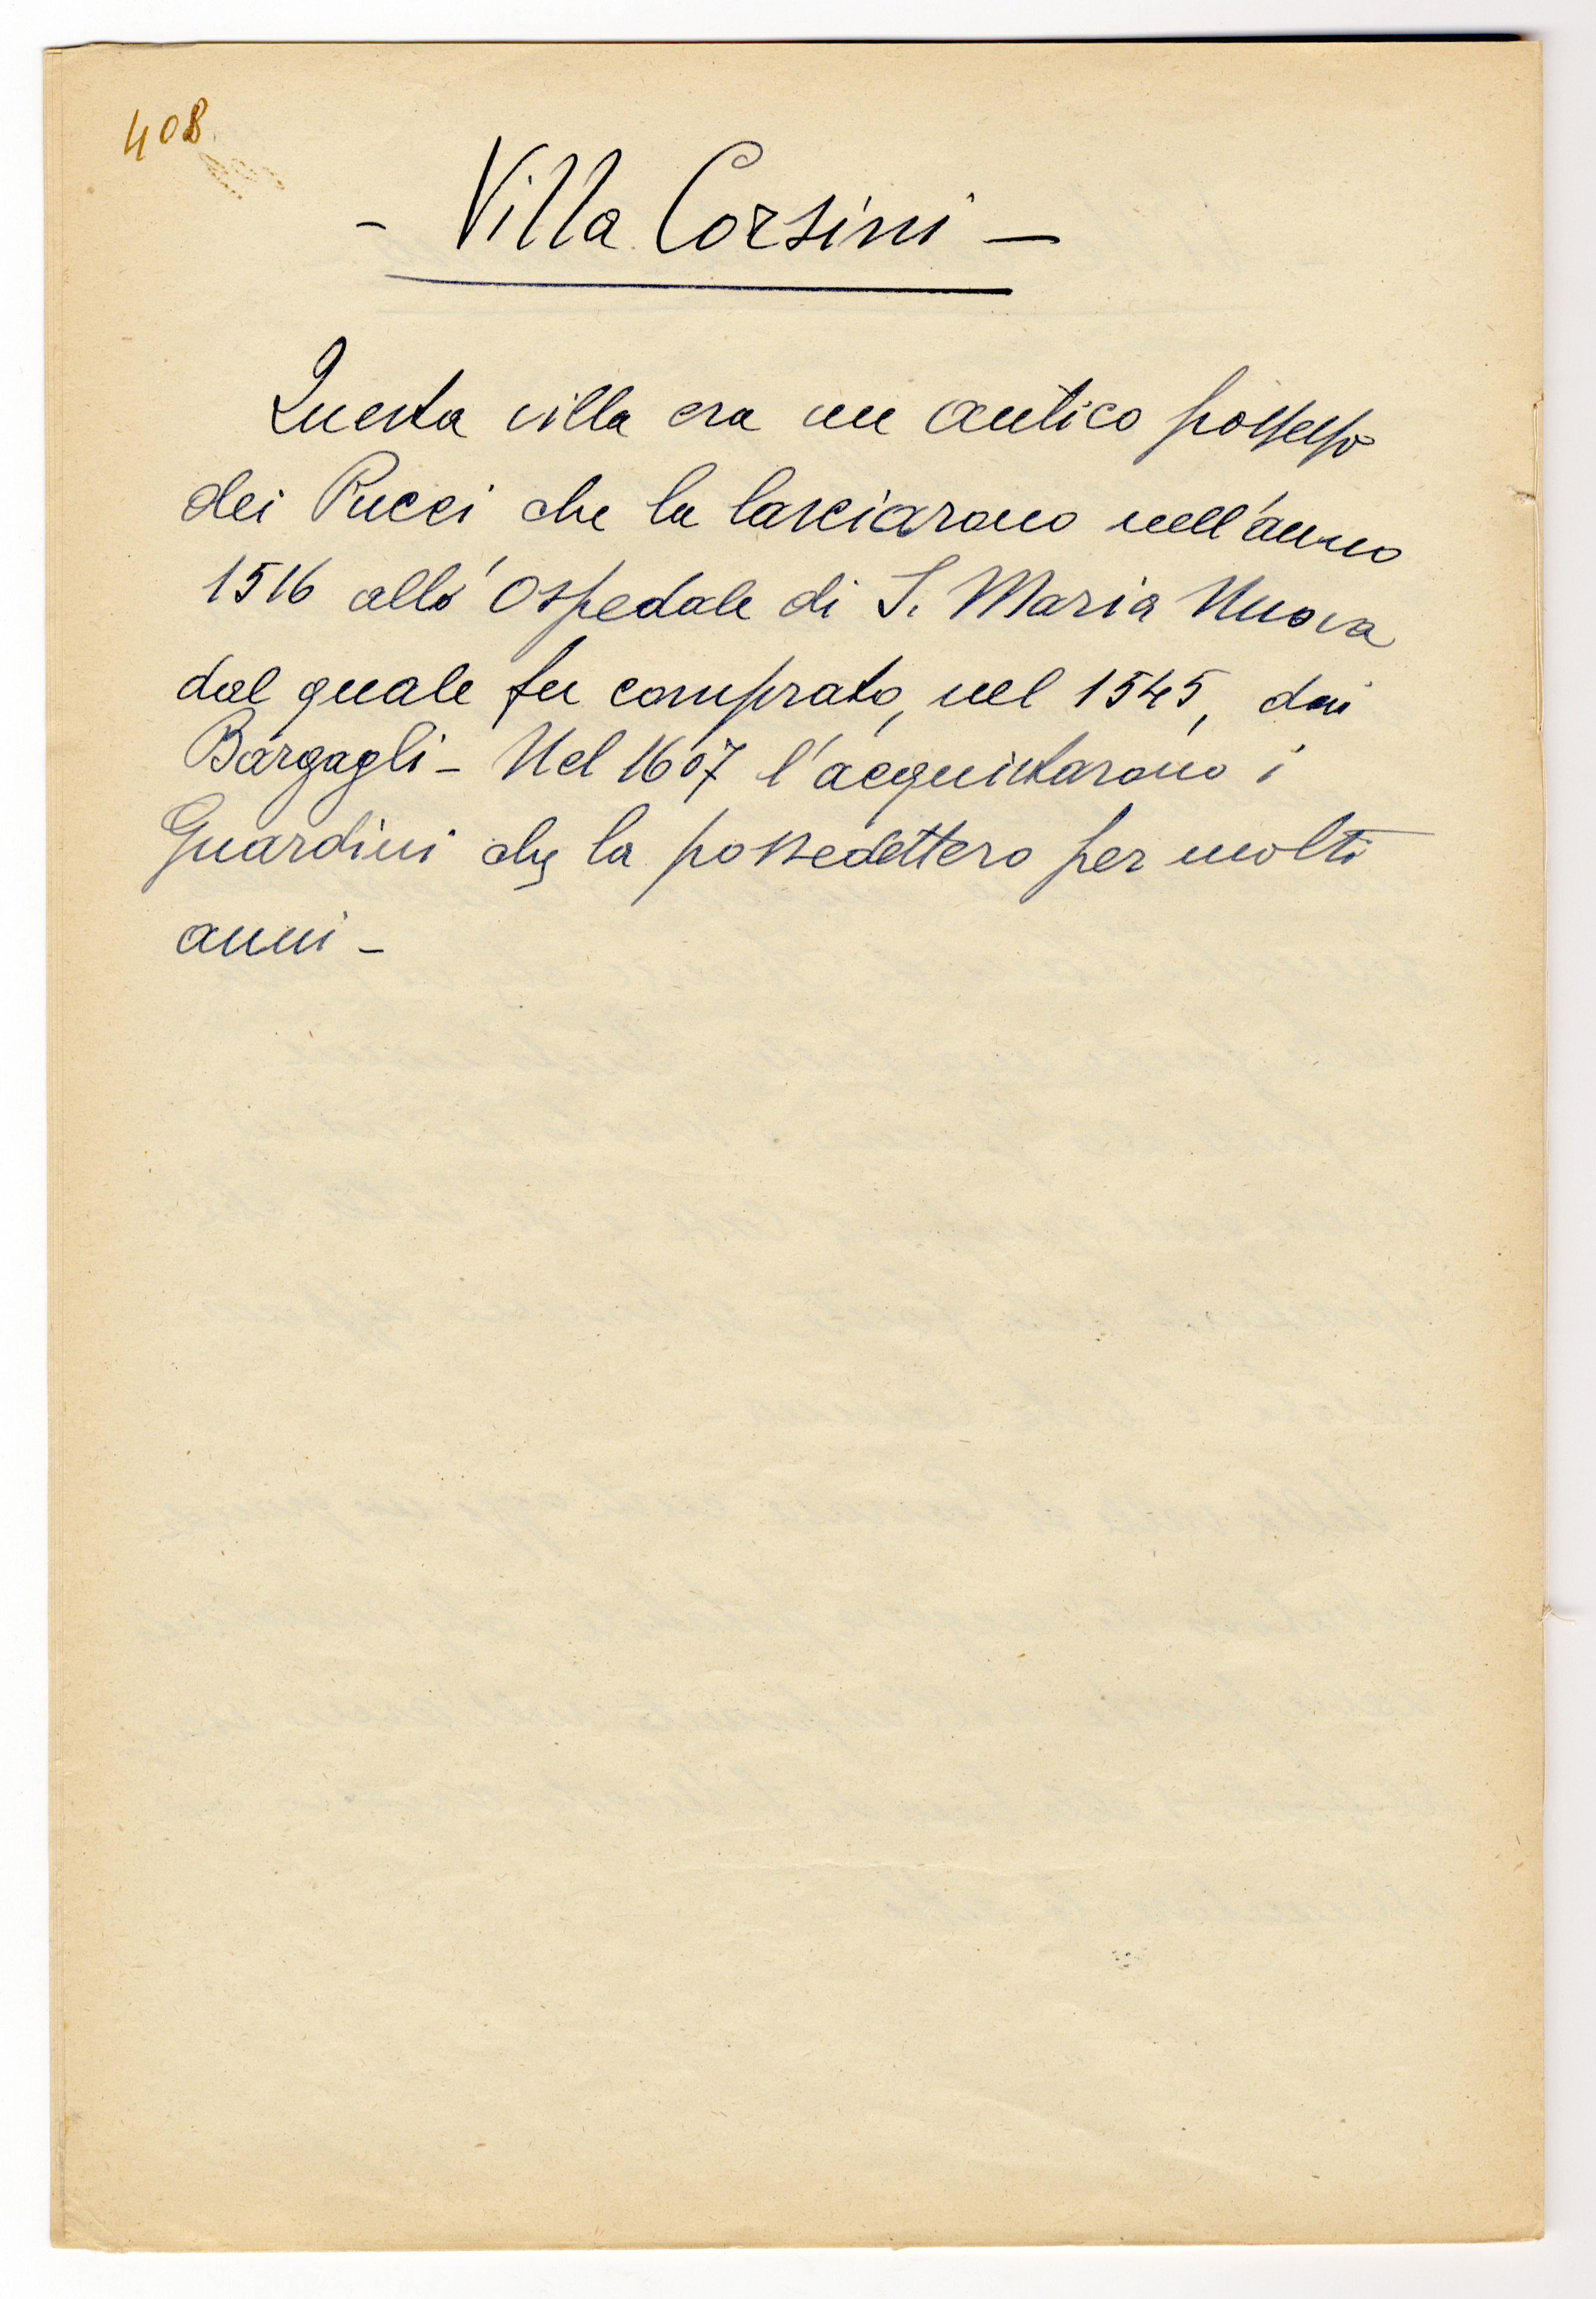 408
- Villa Corsini -
Questa villa era un antico possesso
dei Pucci che la lasciarono nell'anno
1516 allo' Ospedale di S. Maria Nuova
dal quale fu comprato, nel 1545, dai
Bargagli - Nel 1607 l'acquistarono i
Guardini che la possedettero per molti
anni -